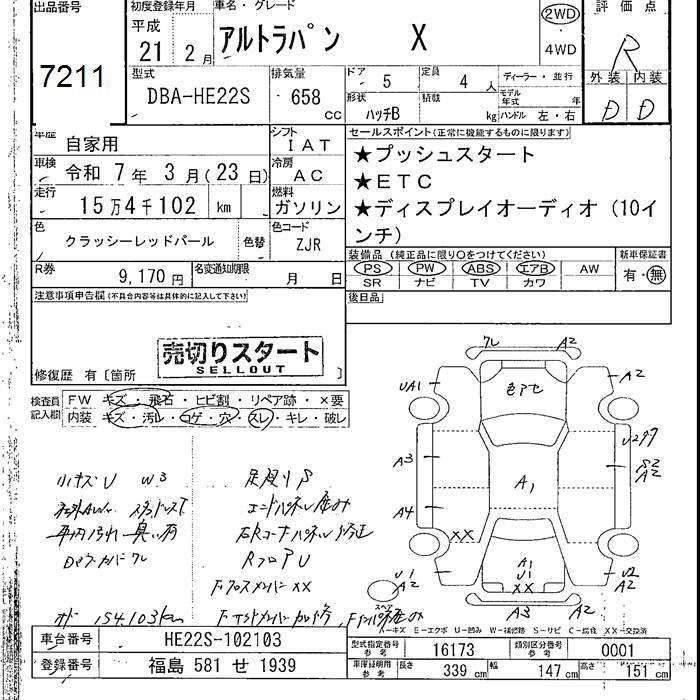 出品番号
7211
初度登録年月
平成
21 2月
車名・グレード
アルトラパン X
2WD
・
4WD
評価点
R
外装 内装
D D
型式
DBA-HE22S
排気量
658
cc
ドア 5
定員 4 人
形状 ハッチB
積載 kg
ディーラー・並行
モデル年式 年
ハンドル 左・右
車歴 自家用
シフト IAT
車検 令和 7年 3月(23日)
冷房 AC
走行 15万4千102 km
燃料 ガソリン
色 クラッシーレッドパール 色替
色コード ZJR
R券 9,170円
名変通知期限 月 日
セールスポイント(正常に機能するものに限ります)
★プッシュスタート
★ETC
★ディスプレイオーディオ(10インチ)
装備品(純正品に限り○をつけてください)
PS PW ABS エアB AW
SR ナビ TV カワ
新車保証書
有・無
後日品
注意事項申告欄(不具合内容等は具体的に記入して下さい)
売切りスタート
SELLOUT
修復歴 有〔箇所 〕
検査員記入欄
FW キズ・飛石・ヒビ割・リペア跡・×要
内装 キズ・汚レ・コゲ・穴・スレ・キレ・破レ
小キズU W3
足廻りS
車内汚れ 臭い有
RフロアU
FクロスメンバーXX
154,103km
ワレ A2
色アセ
UA1
A2
A3
A1
A4
XX
A1
U1
XX
U1
A2
スペア
A3 A2
U2
A2
A-キズ E-エクボ U-凹み W-補修跡 S-サビ C-腐食 XX-交換済
車台番号 HE22S-102103
登録番号 福島 581 せ 1939
型式指定番号 参考 16173
類別区分番号 参考 0001
車庫証明用 参考 長さ 339 cm 幅 147 cm 高さ 151 cm